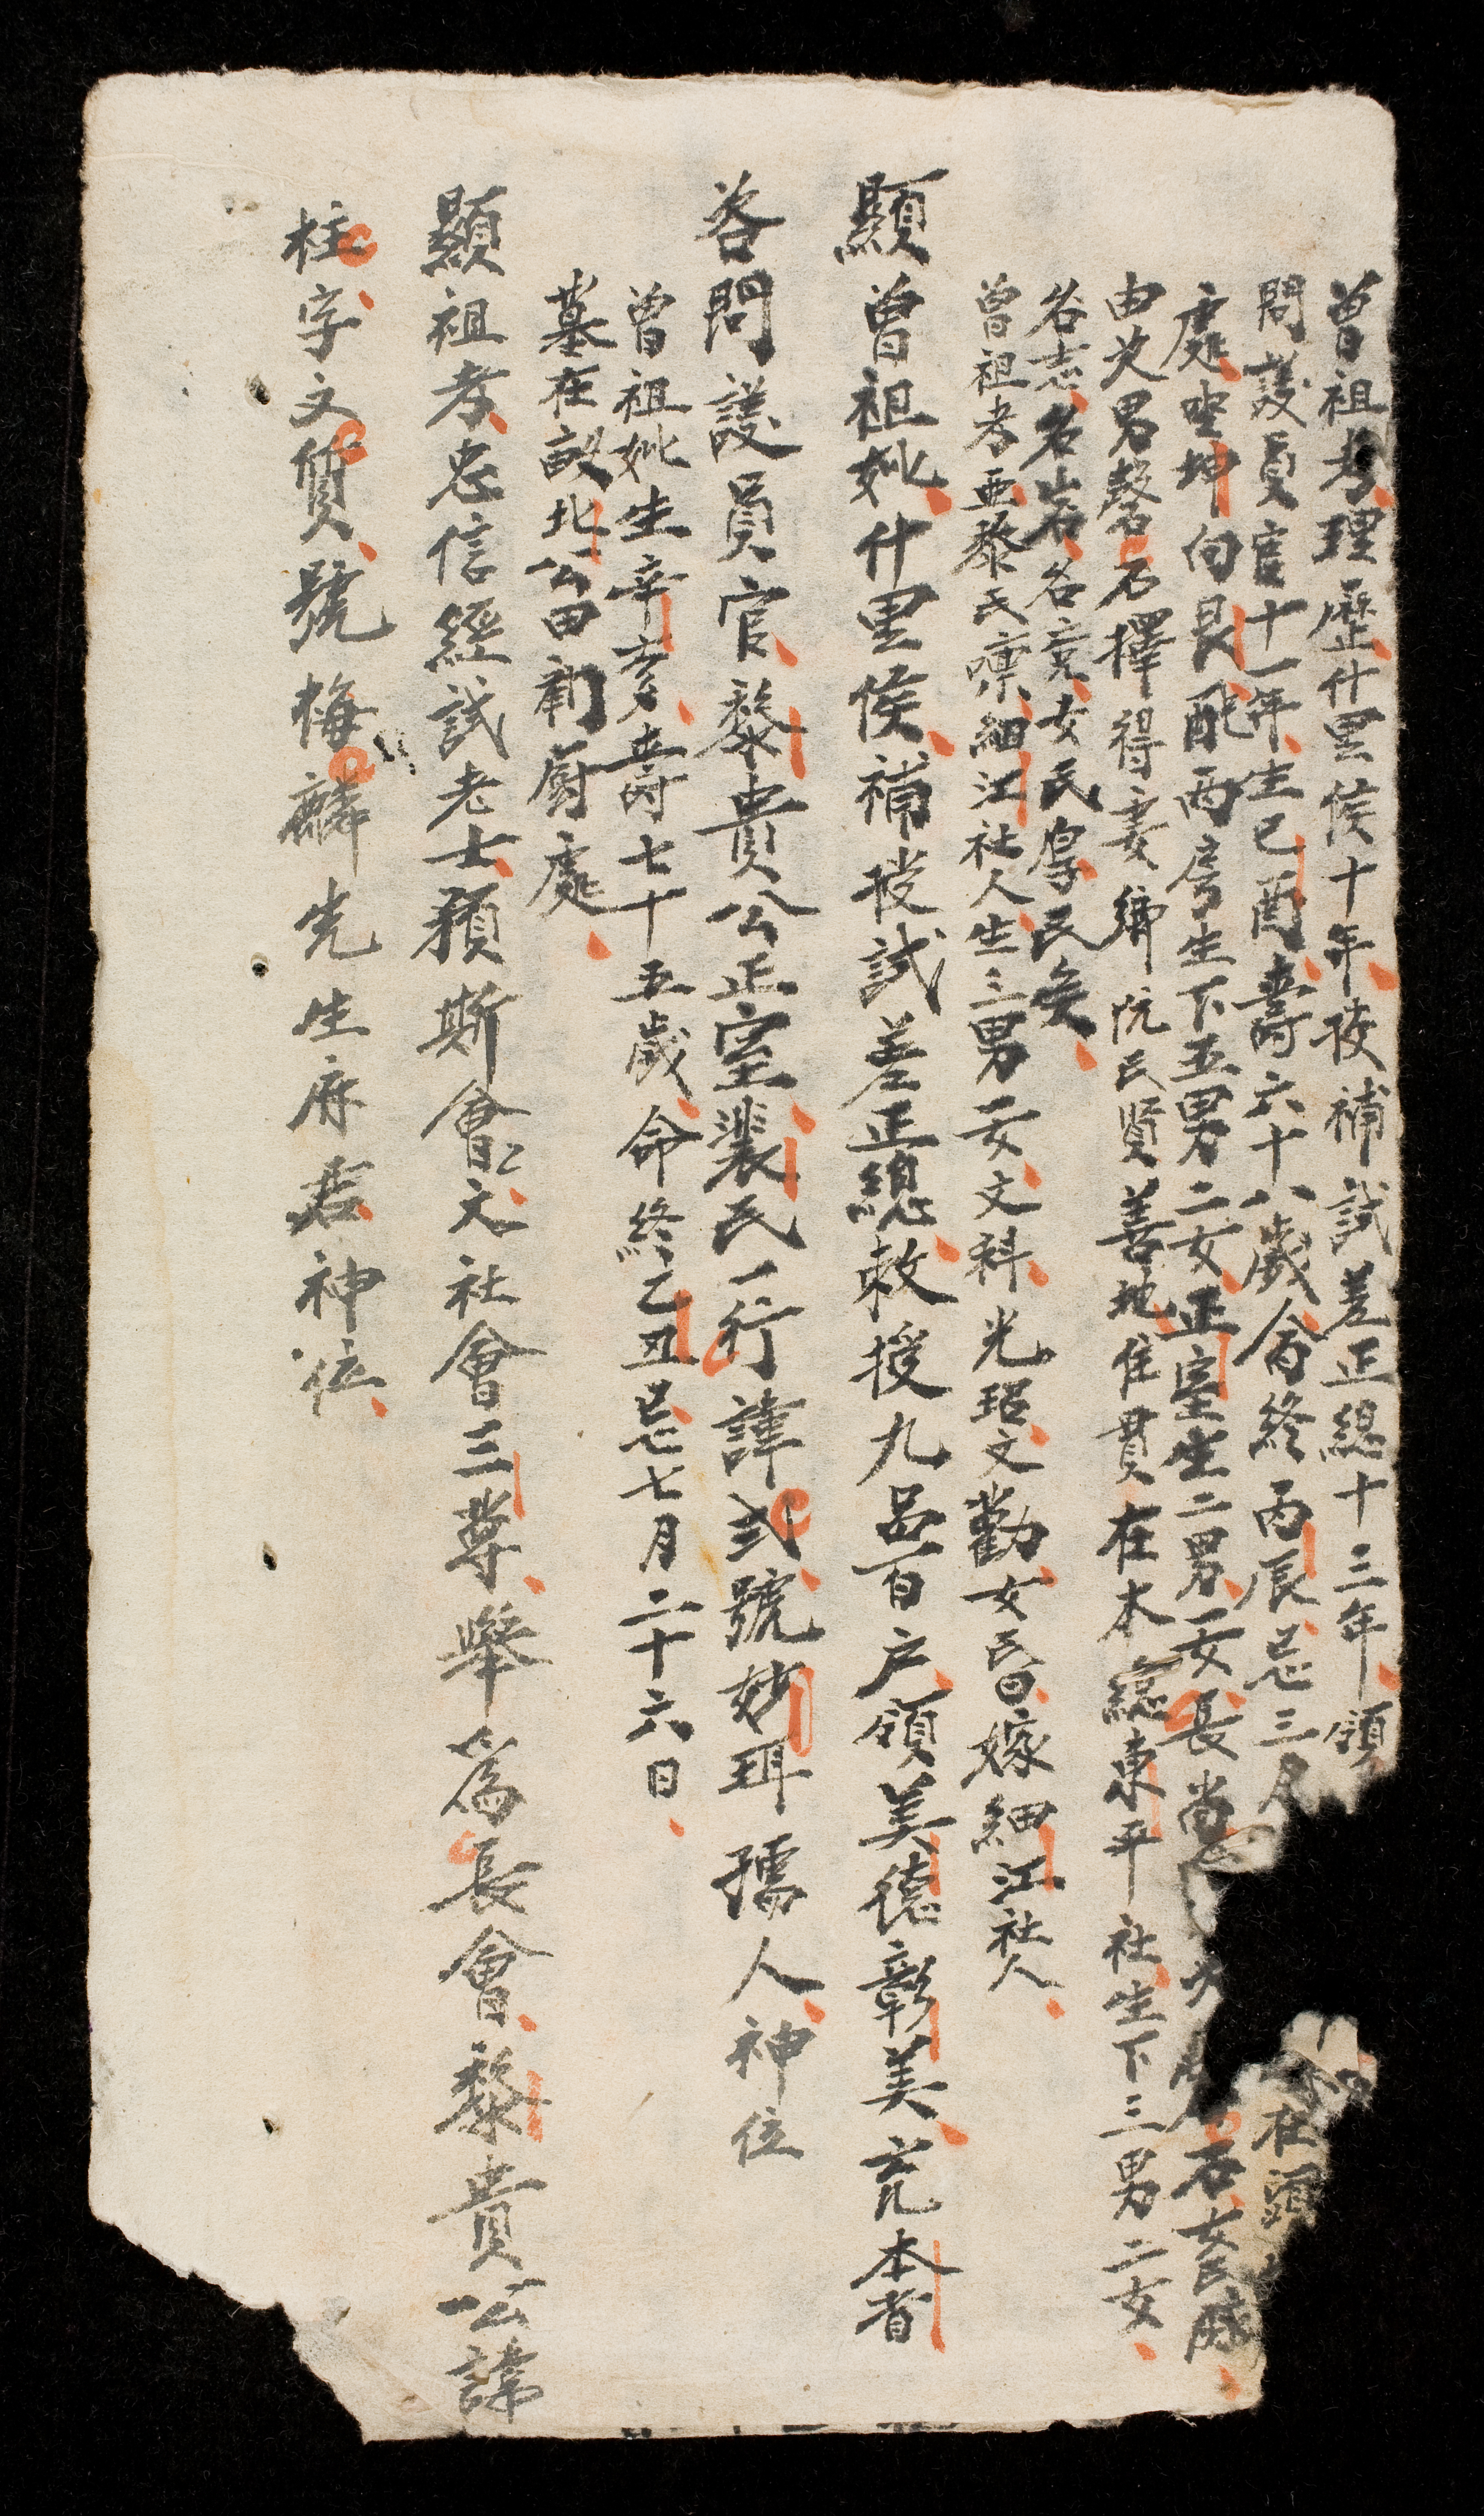 曾祖考理歷什里侯十年授補試差正總十三年領
問護員官十一年生己酉壽六十八歲命終丙辰忌三月 在頭
處坐坤向艮配兩房生下五男二女正室生二男一女長尚 石女民
由次男磬石擇得妻鄉阮氏賢善地住貫在本總東平社生下三男二女
名志名岩名竞女民厚民矣
曾祖考亞黎氏凜細江社人生三男一女文科光珆文勸女氏昏嫁細江社人
顯曾祖妣什里侯補授試差正總敕授九品百户領美德彰美亮本省
咨問護員官黎貴公正室裴氏一行諱弍號妙珥孺人神位
曾祖妣生辛亥壽七十五歲命終乙丑忌七月二十六日
墓在設北公田廟廚處
顯祖考忠信經試老士預斯會文社會三尊舉為長會黎貴公諱
柱字文質號梅麟先生府君神位